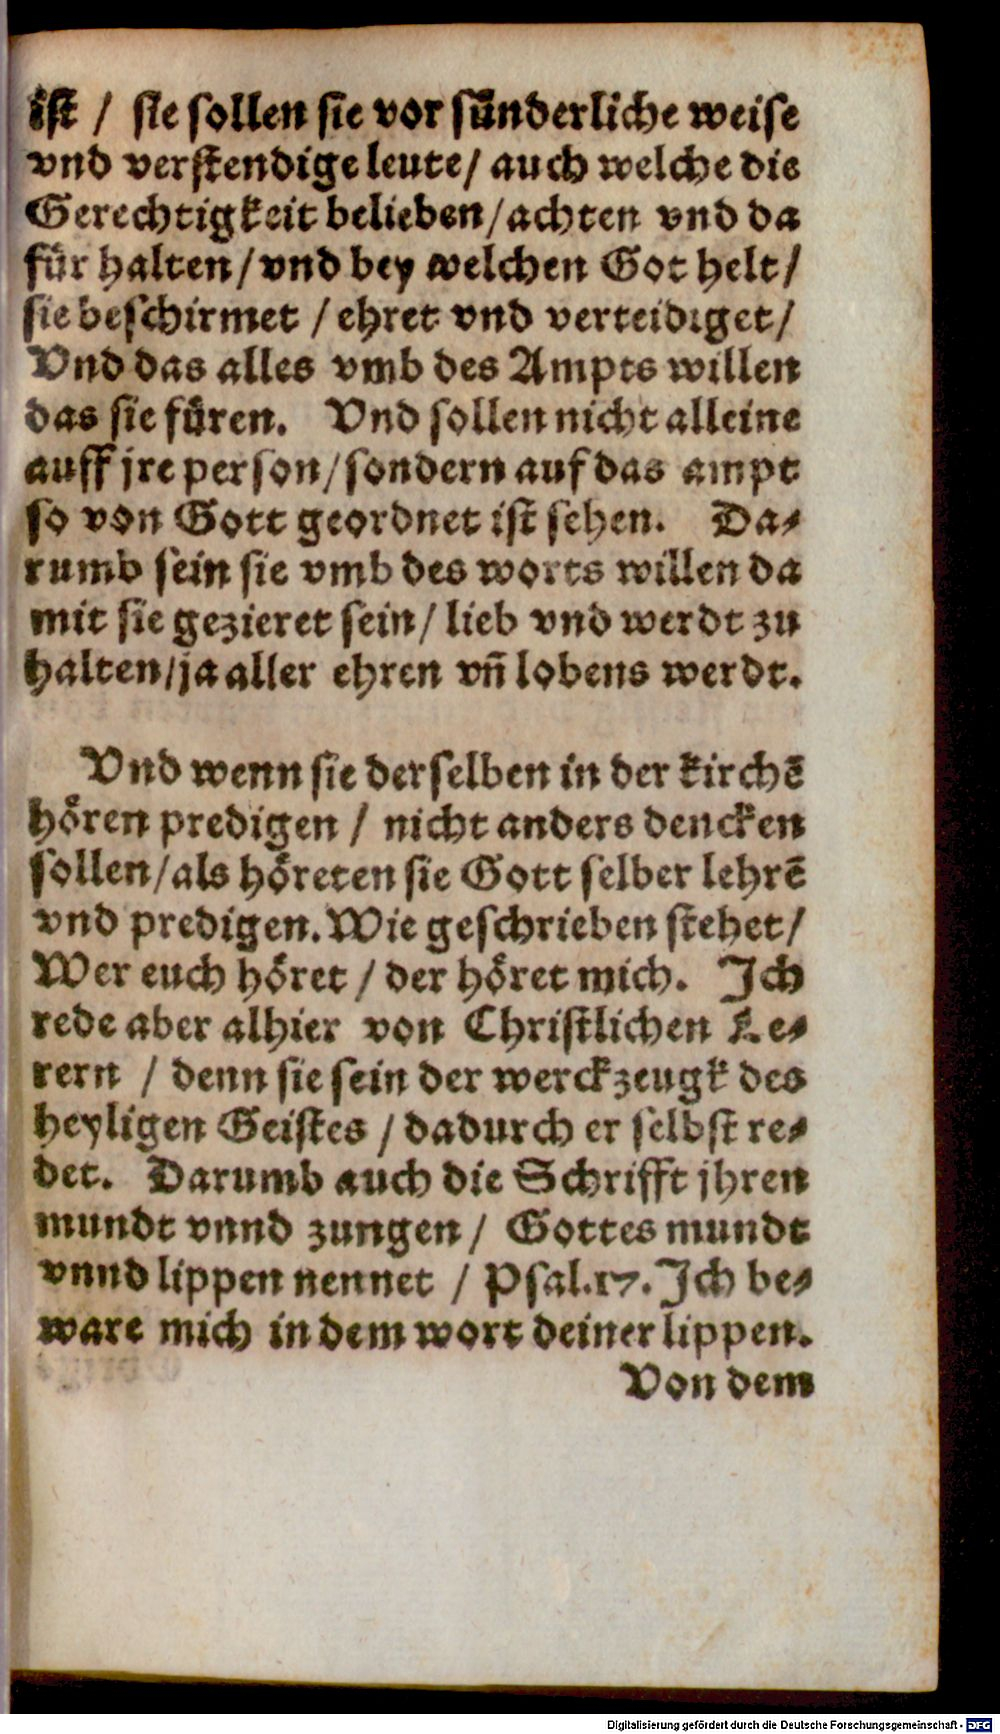 ist / sie sollen sie vor sünderliche weise
vnd verstendige leute / auch welche die
Gerechtigkeit belieben / achten vnd da
für halten / vnd bey welchen Got helt /
sie beschirmet / ehret vnd verteidiget /
Vnd das alles vmb des Ampts willen
das sie füren. Vnd sollen nicht alleine
auff jre person / sondern auf das ampt
so von Gott geordnet ist sehen. Da⸗
rumb sein sie vmb des worts willen da
mit sie gezieret sein / lieb vnd werdt zu
halten / ja aller ehren vñ lobens werdt.
Vnd wenn sie derselben in der kirchẽ
hören predigen / nicht anders dencken
sollen / als höreten sie Gott selber lehrẽ
vnd predigen. Wie geschrieben stehet /
Wer euch höret / der höret mich. Ich
rede aber alhier von Christlichen Le⸗
rern / denn sie sein der werckzeugk des
heyligen Geistes / dadurch er selbst re⸗
det. Darumb auch die Schrifft jhren
mundt vnnd zungen / Gottes mundt
vnnd lippen nennet / Psal. 17. Ich be⸗
ware mich in dem wort deiner lippen.
Von dem
Digitalisierung gefördert durch die Deutsche Forschungsgemeinschaft - DFG